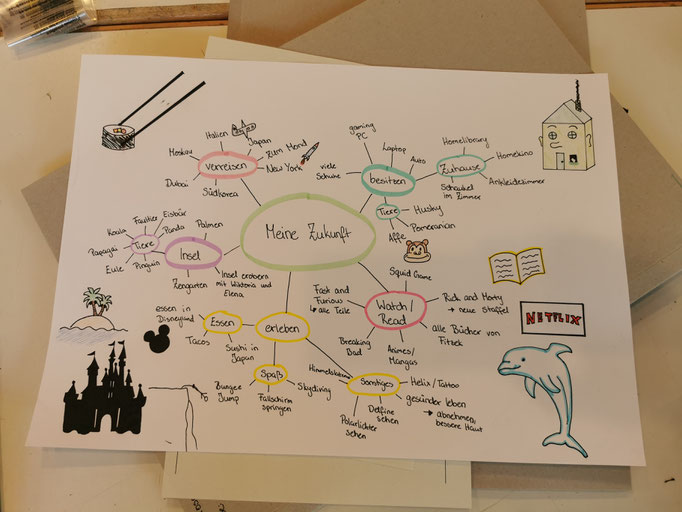 Meine Zukunft
verreisen
Italien
Japan
Moskau
zum Mond
New York
Dubai
Südkorea
besitzen
gaming
PC
Laptop
Auto
viele
Schuhe
Zuhause
Homelibrary
Homekino
Ankleidezimmer
Schaukel
im Zimmer
Tiere
Husky
Pomeranian
Affe
Insel
Palmen
Zengarten
Insel erobern
mit Viktoria und
Elena
Tiere
Koala
Faultier
Eisbär
Panda
Papagai
Eule
Pinguin
Watch/
Read
Squid Game
Fast and
Furious
↳ alle Teile
Rick and Morty
→ neue Staffel
alle Bücher von
Fitzek
Breaking
Bad
Animes/
Mangas
NETFLIX
erleben
Essen
essen in
Disneyland
Tacos
Sushi in
Japan
Spaß
Bungee
Jump
Fallschirm
springen
Skydiving
Sonstiges
Helix/Tattoo
gesünder leben
→ abnehmen,
bessere Haut
Delfine
sehen
Polarlichter
sehen